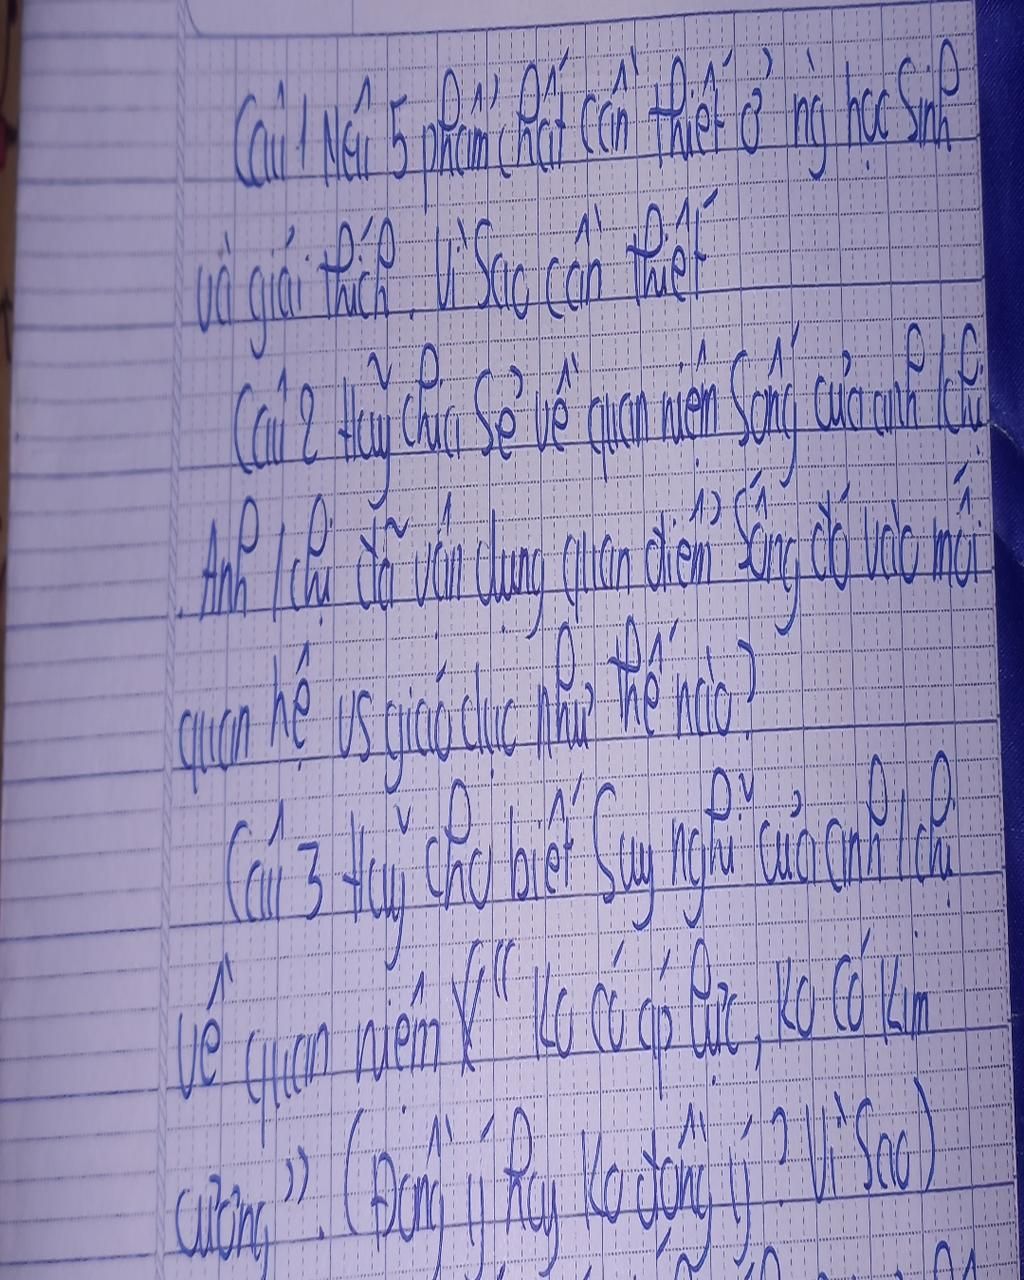 Câu 1 Nêu 5 phẩm chất cần thiết ở ng học sinh
và giải thích. Vì sao cần thiết
Câu 2 Hãy chia sẻ về quan niệm sống của anh / chị
. Anh / chị đã vận dụng quan điểm sống đó vào mối
quan hệ vs giáo dục như thế nào?
Câu 3 Hãy cho biết suy nghĩ của anh / chị
về quan niệm " Ko có áp lực, ko có kim
cương ". (Đồng ý hay ko đồng ý? Vì sao)